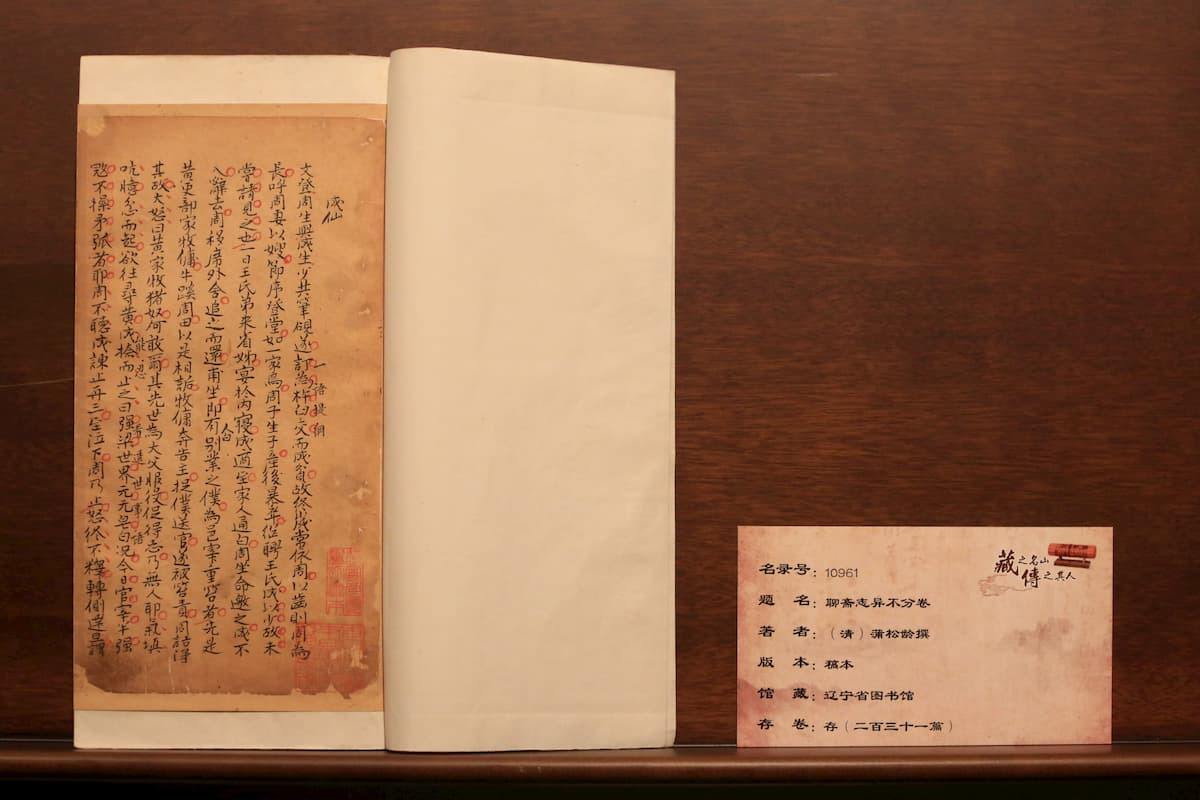 成仙
一語提綱
文登周生與成生少共筆硯遂訂為杵臼交而成貧故終歲常依周以齒則周為
長呼周妻以嫂節序登堂如一家焉周子生子產後暴卒繼聘王氏成以少故未
嘗請見之也一日王氏弟來省姊宴於內寢成適至家人通白周坐命邀之成不
入辭去周移席外舍追之而還甫坐即有人白別業之僕為邑宰重笞者先是
黃吏部家牧傭牛蹊周田以是相詬牧傭奔告主捉僕送官遂被笞責周詰得
其故大怒曰黃家牧猪奴何敢爾其先世為大父服役促得志乃無人耶氣填
吭臆忿而起欲往尋黃成捺而止之曰强梁世界元无皂白況今日官宰半强
能忍
世事語
寇不操矛弧者耶周不聽成諫止再三至泣下周乃止怒終不釋轉側達旦謂
藏之名山
傳之其人
名录号：10961
题 名：聊斋志异不分卷
著 者：（清）蒲松龄撰
版 本：稿本
馆 藏：辽宁省图书馆
存 卷：存（二百三十一篇）